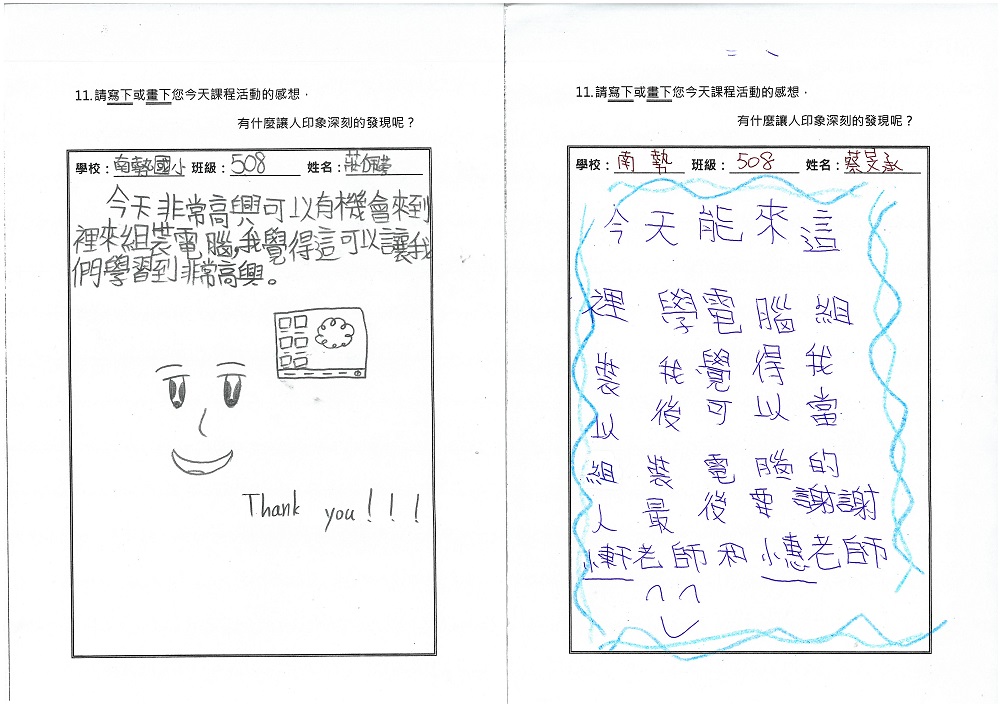 11.請寫下或畫下您今天課程活動的感想，
有什麼讓人印象深刻的發現呢？
學校：南勢國小 班級：508 姓名：莊
今天非常高興可以有機會來到
裡來組裝電腦,我覺得這可以讓我
們學習到非常高興。
Thank you!!!
11.請寫下或畫下您今天課程活動的感想，
有什麼讓人印象深刻的發現呢？
學校：南勢 班級：508 姓名：蔡旻承
今天能來這
裡學電腦組
裝我覺得我
以後可以當
組裝電腦的
人最後要謝謝
小軒老師和小惠老師